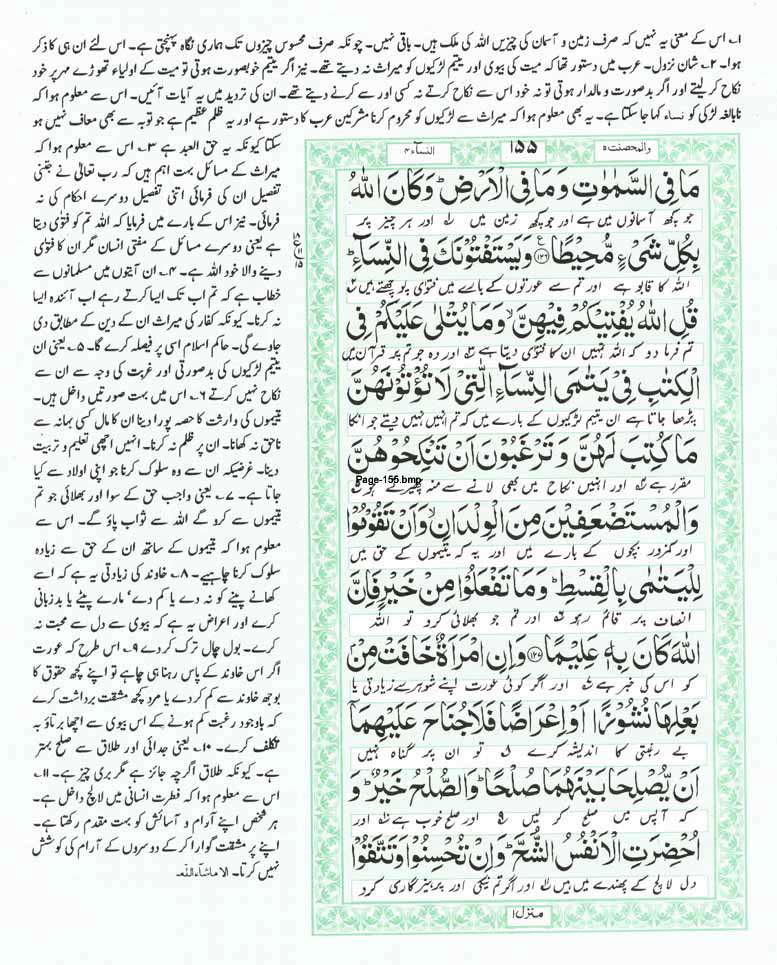 ۱؎ اس کے معنی یہ نہیں کہ صرف زمین و آسمان کی چیزیں اللہ کی ملک ہیں۔ باقی نہیں۔ چونکہ صرف محسوس چیزوں تک ہماری نگاہ پہنچتی ہے۔ اس لئے ان ہی کا ذکر
ہوا۔ ۲؎ شان نزول۔ عرب میں دستور تھا کہ میت کی بیوی اور یتیم لڑکیوں کو میراث نہ دیتے تھے۔ نیز اگر یتیم خوبصورت ہوتی تو میت کے اولیاء تھوڑے مہر پر خود
نکاح کر لیتے اور اگر بدصورت و مالدار ہوتی تو نہ خود اس سے نکاح کرتے نہ کسی اور سے کرنے دیتے تھے۔ ان کی تردید میں یہ آیات آئیں۔ اس سے معلوم ہوا کہ
نابالغہ لڑکی کو نساء کہا جا سکتا ہے۔ یہ بھی معلوم ہوا کہ میراث سے لڑکیوں کو محروم کرنا مشرکین عرب کا دستور ہے اور یہ ظلم عظیم ہے جو توبہ سے بھی معاف نہیں ہو
سکتا کیونکہ یہ حق العبد ہے ۳؎ اس سے معلوم ہوا کہ
میراث کے مسائل بہت اہم ہیں کہ رب تعالیٰ نے جتنی
تفصیل ان کی فرمائی اتنی تفصیل دوسرے احکام کی نہ
فرمائی۔ نیز اس کے بارے میں فرمایا کہ اللہ تم کو فتوٰی دیتا
ہے یعنی دوسرے مسائل کے مفتی انسان مگر ان کا فتوٰی
دینے والا خود اللہ ہے۔ ۴؎ ان آیتوں میں مسلمانوں سے
خطاب ہے کہ تم اب تک ایسا کرتے رہے اب آئندہ ایسا
نہ کرنا۔ کیونکہ کفار کی میراث ان کے دین کے مطابق دی
جاوے گی۔ حاکم اسلام اسی پر فیصلہ کرے گا۔ ۵؎ یعنی ان
یتیم لڑکیوں کی بدصورتی اور غربت کی وجہ سے ان سے
نکاح نہیں کرتے ۶؎ اس میں بہت صورتیں داخل ہیں۔
یتیموں کی وارثت کا حصہ پورا دینا ان کا مال کسی بہانہ سے
ناحق نہ کھانا۔ ان پر ظلم نہ کرنا۔ انہیں اچھی تعلیم و تربیت
دینا۔ غرضیکہ ان سے وہ سلوک کرنا جو اپنی اولاد سے کیا
جاتا ہے۔ ۷؎ یعنی واجب حق کے سوا اور بھلائی جو تم
یتیموں سے کرو گے اللہ سے ثواب پاؤ گے۔ اس سے
معلوم ہوا کہ یتیموں کے ساتھ ان کے حق سے زیادہ
سلوک کرنا چاہیے۔ ۸؎ خاوند کی زیادتی یہ ہے کہ اسے
کھانے پینے کو نہ دے یا کم دے‘ مارے پیٹے یا بدزبانی
کرے اور اعراض یہ ہے کہ بیوی سے دل سے محبت نہ
کرے۔ بول چال ترک کر دے ۹؎ اس طرح کہ عورت
اگر اس خاوند کے پاس رہنا ہی چاہے تو اپنے کچھ حقوق کا
بوجھ خاوند سے کم کر دے یا مرد کچھ مشقت برداشت کرے
کہ باوجود رغبت کم ہونے کے اس بیوی سے اچھا برتاؤ بہ
تکلف کرے۔ ۱۰؎ یعنی جدائی اور طلاق سے صلح بہتر
ہے۔ کیونکہ طلاق اگرچہ جائز ہے مگر بری چیز ہے۔ ۱۱؎
اس سے معلوم ہوا کہ فطرت انسانی میں لالچ داخل ہے۔
ہر شخص اپنے آرام و آسائش کو بہت مقدم رکھتا ہے۔
اپنے پر مشقت گوارا کر کے دوسروں کے آرام کی کوشش
نہیں کرتا۔ الا ماشاءاللہ
والمحصنت ۵
۱۵۵
النسآء ۴
مَا فِی السَّمٰوٰتِ وَمَا فِی الْاَرْضِ ؕ وَكَانَ اللّٰهُ
جو کچھ آسمانوں میں ہے اور جو کچھ زمین میں ۱؎ اور ہر چیز پر
بِكُلِّ شَیْءٍ مُّحِیْطًا ﴿۱۲۶﴾ وَیَسْتَفْتُوْنَكَ فِی النِّسَآءِ ؕ
اللہ کا قابو ہے اور تم سے عورتوں کے بارے میں فتوٰی پوچھتے ہیں ۲؎
قُلِ اللّٰهُ یُفْتِیْكُمْ فِیْهِنَّ ۙ وَمَا یُتْلٰی عَلَیْكُمْ فِی
تم فرما دو کہ اللہ تمہیں ان کا فتوٰی دیتا ہے ۳؎ اور وہ جو تم پر قرآن میں
الْكِتٰبِ فِیْ یَتٰمَی النِّسَآءِ الّٰتِیْ لَا تُؤْتُوْنَهُنَّ
پڑھا جاتا ہے ان یتیم لڑکیوں کے بارے میں کہ تم انہیں نہیں دیتے جو انکا
مَا كُتِبَ لَهُنَّ وَتَرْغَبُوْنَ اَنْ تَنْكِحُوْهُنَّ
Page-155.bmp
مقرر ہے ۴؎ اور انہیں نکاح میں بھی لانے سے منہ پھیرتے ہو ۵؎
وَالْمُسْتَضْعَفِیْنَ مِنَ الْوِلْدَانِ ۙ وَاَنْ تَقُوْمُوْا
اور کمزور بچوں کے بارے میں اور یہ کہ یتیموں کے حق میں
لِلْیَتٰمٰی بِالْقِسْطِ ؕ وَمَا تَفْعَلُوْا مِنْ خَیْرٍ فَاِنَّ
انصاف پر قائم رہو ۶؎ اور تم جو بھلائی کرو تو اللہ
اللّٰهَ كَانَ بِهٖ عَلِیْمًا ﴿۱۲۷﴾ وَاِنِ امْرَاَةٌ خَافَتْ مِنْۢ
کو اس کی خبر ہے ۷؎ اور اگر کوئی عورت اپنے شوہر سے زیادتی یا
بَعْلِهَا نُشُوْزًا اَوْ اِعْرَاضًا فَلَا جُنَاحَ عَلَیْهِمَاۤ
بے رغبتی کا اندیشہ کرے ۸؎ تو ان پر گناہ نہیں
اَنْ یُّصْلِحَا بَیْنَهُمَا صُلْحًا ؕ وَالصُّلْحُ خَیْرٌ ؕ وَ
کہ آپس میں صلح کر لیں ۹؎ اور صلح خوب ہے ۱۰؎ اور
اُحْضِرَتِ الْاَنْفُسُ الشُّحَّ ؕ وَاِنْ تُحْسِنُوْا وَتَتَّقُوْا
دل لالچ کے پھندے میں ہیں ۱۱؎ اور اگر تم نیکی اور پرہیزگاری کرو
منزل ۱